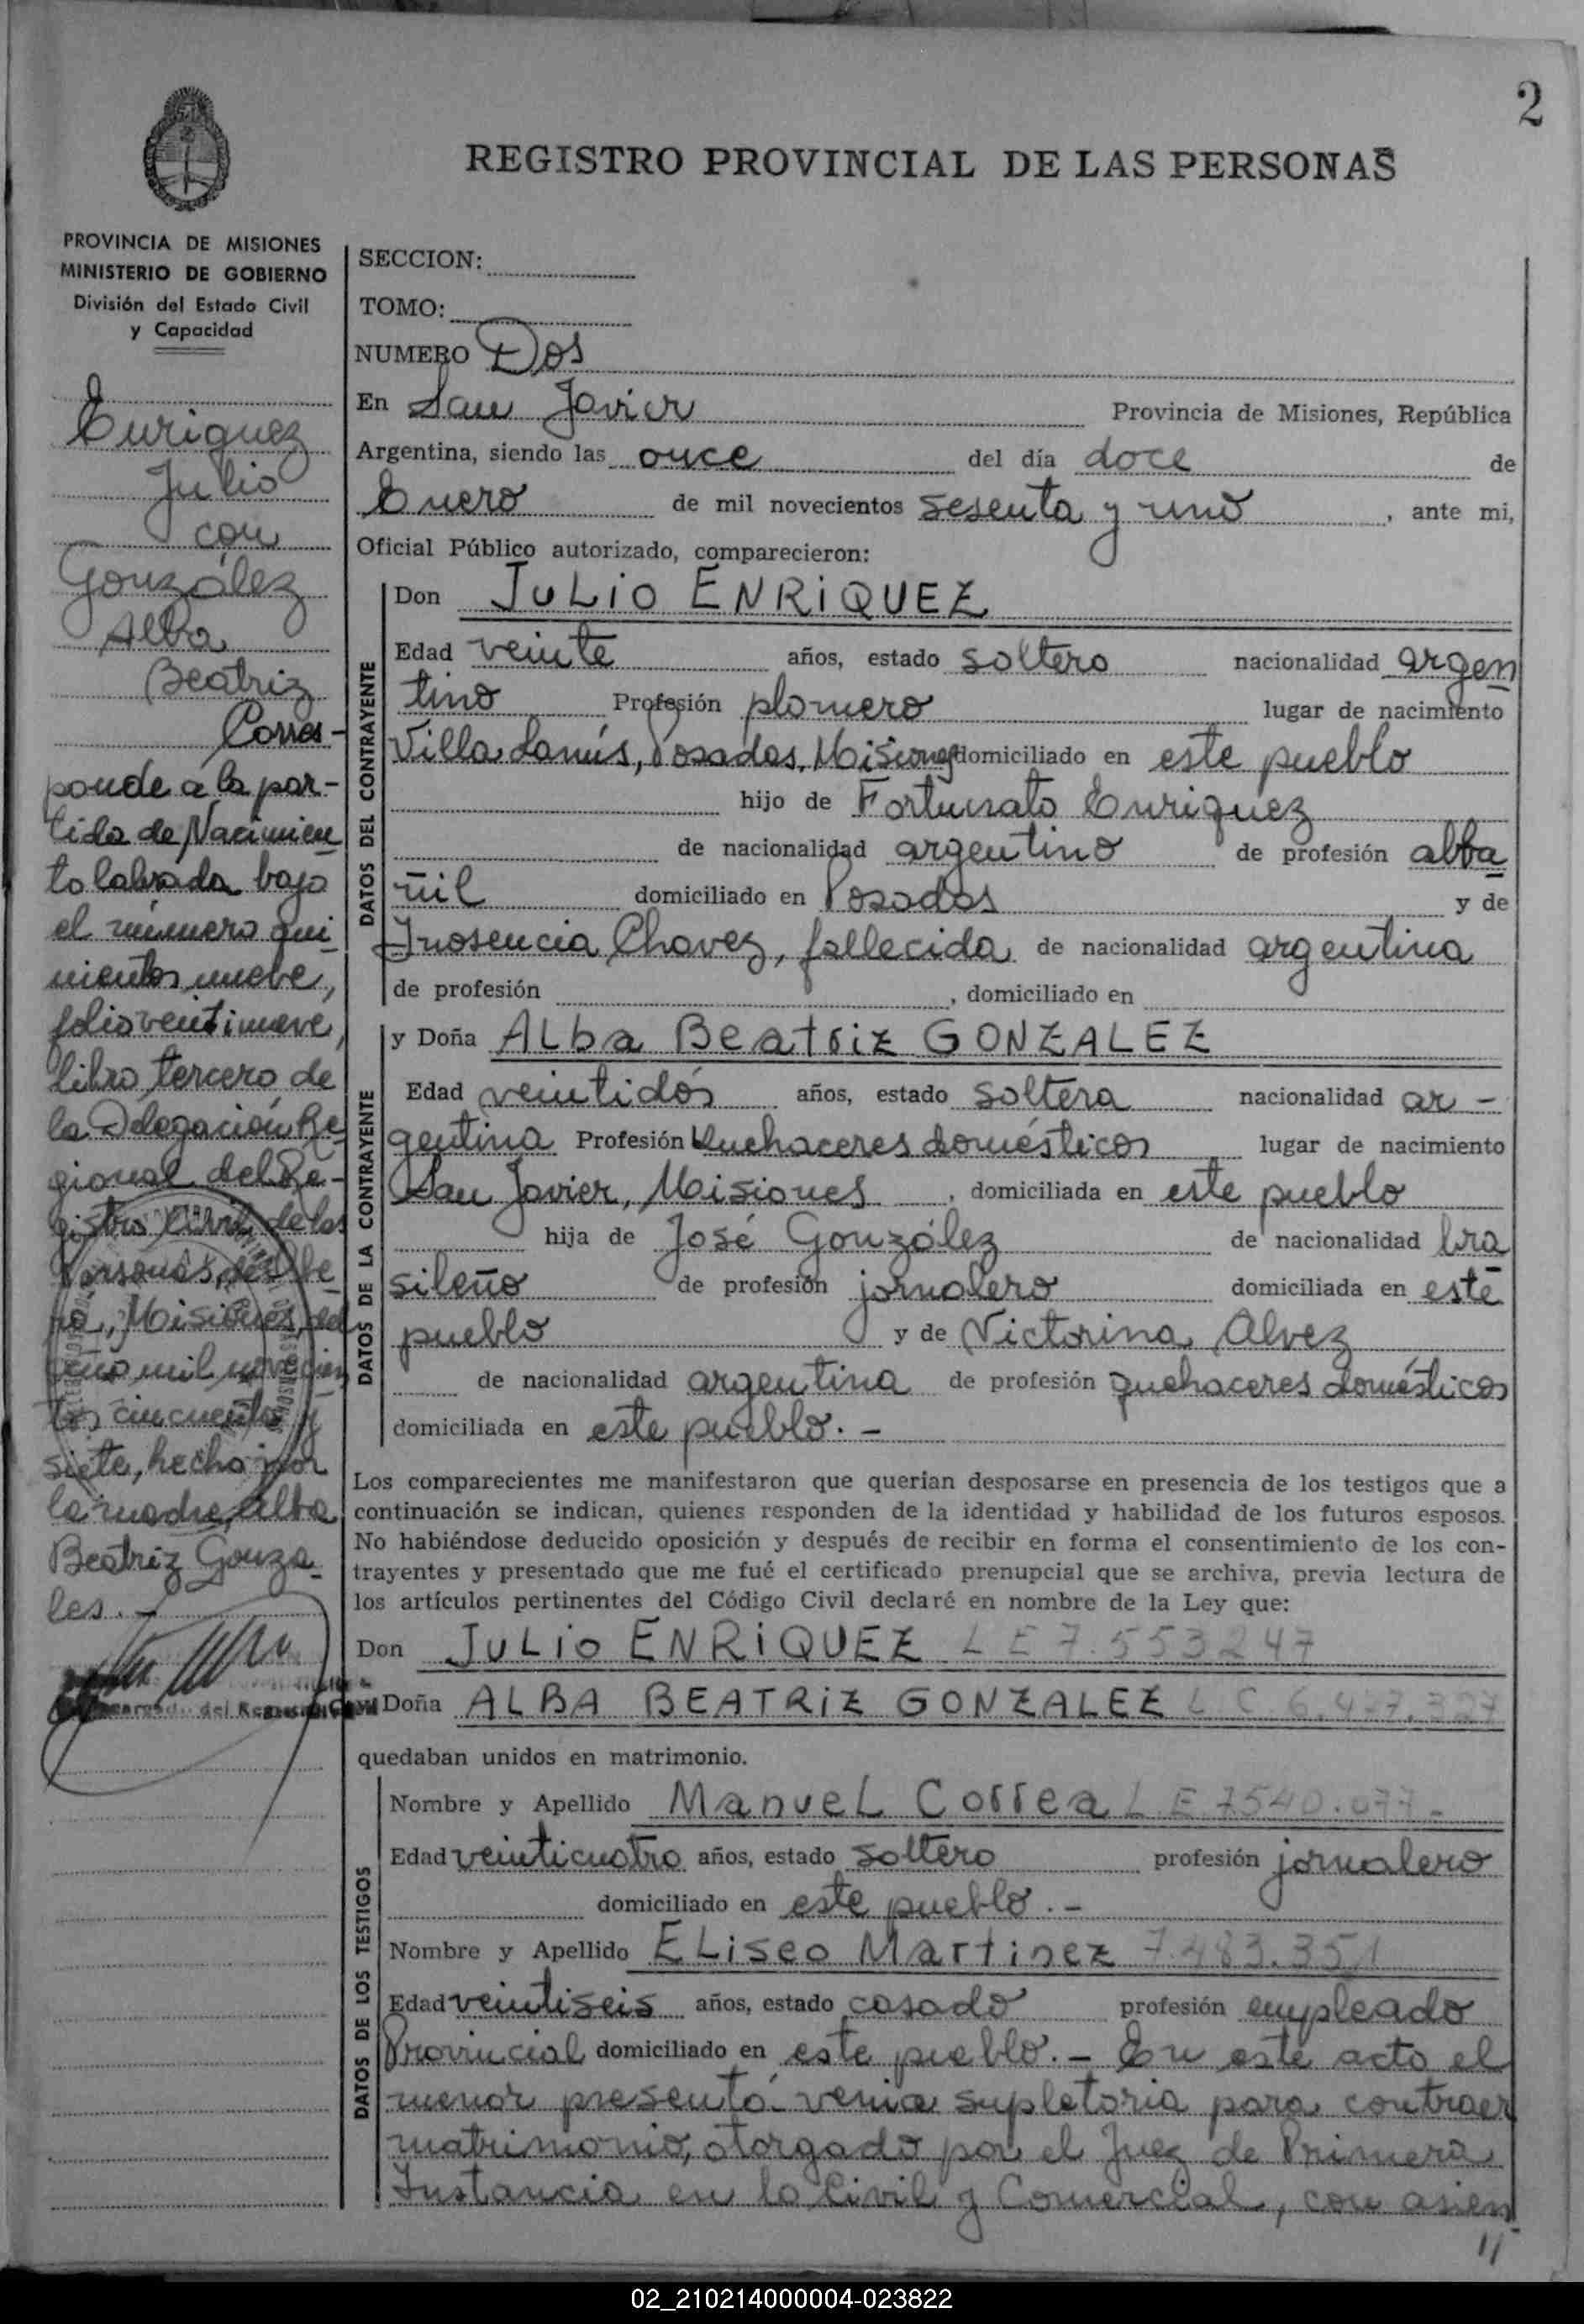 2
REGISTRO PROVINCIAL DE LAS PERSONAS
PROVINCIA DE MISIONES
MINISTERIO DE GOBIERNO
División del Estado Civil
y Capacidad
Enriquez
Julio
con
González
Alba
Beatriz
Corres-
ponde a la par-
tida de Nacimien
to labrada bajo
el número qui
nientos nueve,
folio veintinueve,
libro tercero de
la Delegación Re
gional del Re-
gistro Civil de las
Personas, de
Misiones, del
año mil novecien
tos cincuenta y
siete, hecha por
la madre, Alba
Beatriz Gonza
les.-
del Registro Civil
SECCION:
TOMO:
NUMERO Dos
En San Javier Provincia de Misiones, República
Argentina, siendo las once del día doce de
Enero de mil novecientos sesenta y uno, ante mi,
Oficial Público autorizado, comparecieron:
DATOS DEL CONTRAYENTE
Don JULIO ENRIQUEZ
Edad veinte años, estado soltero nacionalidad argen
tino Profesión plomero lugar de nacimiento
Villa Lanús, Posadas, Misiones domiciliado en este pueblo
hijo de Fortunato Enriquez
de nacionalidad argentino de profesión alba
ñil domiciliado en Posadas y de
Inosencia Chavez, fallecida, de nacionalidad argentina
de profesión , domiciliado en
DATOS DE LA CONTRAYENTE
y Doña ALba Beatriz GONZALEZ
Edad veintidós años, estado soltera nacionalidad ar-
gentina Profesión Quehaceres domésticos lugar de nacimiento
San Javier, Misiones, domiciliada en este pueblo
hija de José González de nacionalidad bra
sileño de profesión jornalero domiciliada en este
pueblo y de Victorina Alvez
de nacionalidad argentina de profesión quehaceres domésticos
domiciliada en este pueblo.-
Los comparecientes me manifestaron que querian desposarse en presencia de los testigos que a
continuación se indican, quienes responden de la identidad y habilidad de los futuros esposos.
No habiéndose deducido oposición y después de recibir en forma el consentimiento de los con-
trayentes y presentado que me fué el certificado prenupcial que se archiva, previa lectura de
los artículos pertinentes del Código Civil declaré en nombre de la Ley que:
Don JULIO ENRIQUEZ L E 7.553247
Doña ALBA BEATRIZ GONZALEZ L C 6.477.327
quedaban unidos en matrimonio.
DATOS DE LOS TESTIGOS
Nombre y Apellido ManueL Correa L E 7540.077-
Edad veinticuatro años, estado soltero profesión jornalero
domiciliado en este pueblo.-
Nombre y Apellido ELiseo Martinez 7.483.351
Edad veintiseis años, estado casado profesión empleado
Provincial domiciliado en este pueblo.- En este acto el
menor presentó venia supletoria para contraer
matrimonio, otorgado por el Juez de Primera
Instancia en lo Civil y Comercial, con asien
//
02_210214000004-023822